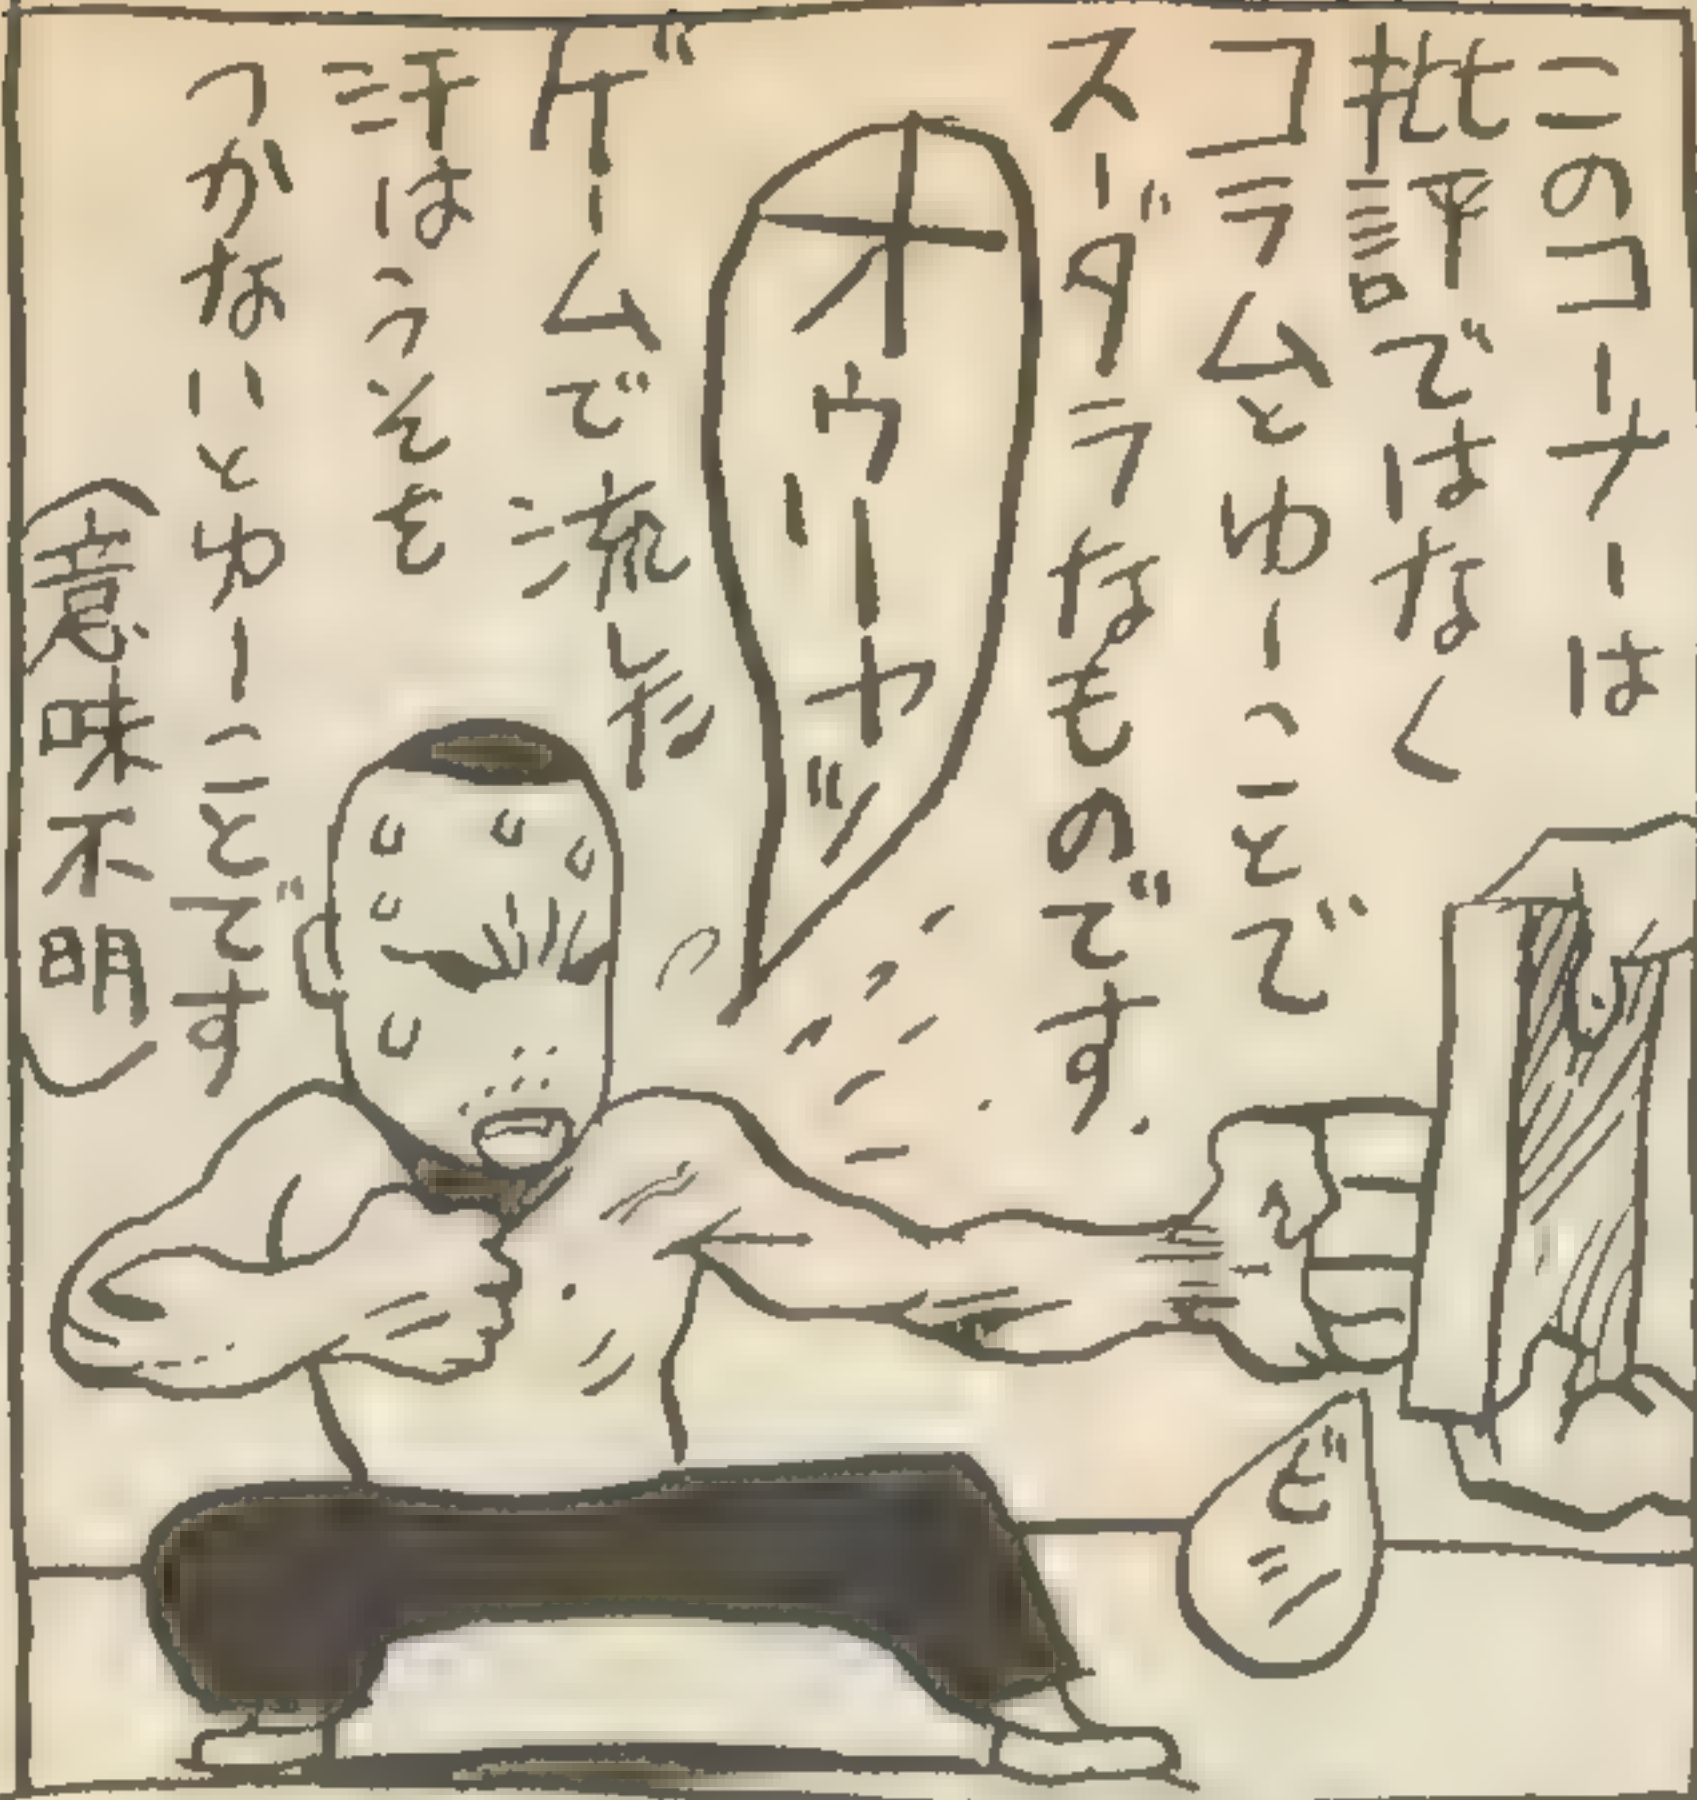 このコーナーは
批評ではなく
コラムとゆーことで
スーダラなものです.
オゥーヤッ
ゲームで流した
汗はうそを
つかないとゆーことです
(意味不明)
ビシ